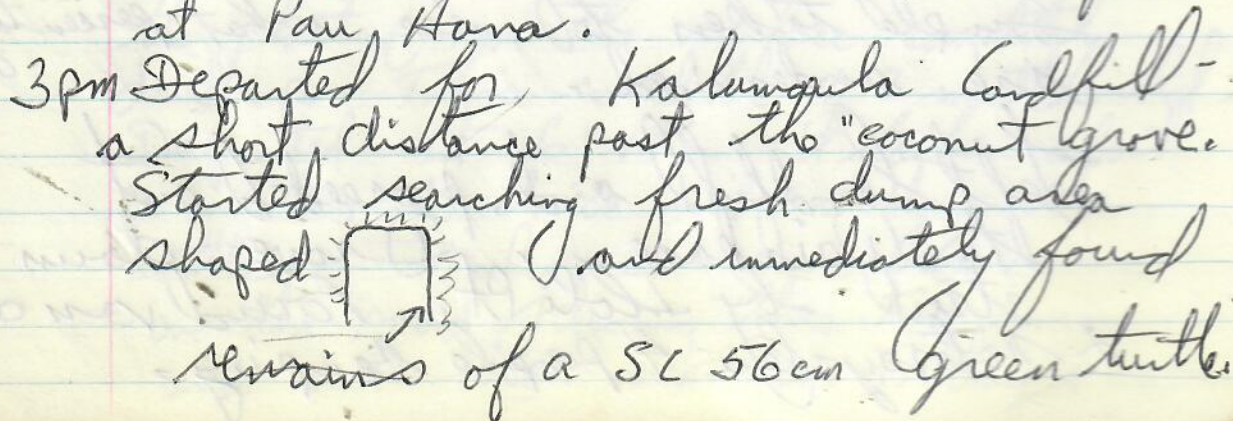 at Pau Hana.
3pm Departed for Kalamaula Landfill -
a short distance past the "coconut grove.
Started searching fresh dump area
shaped and immediately found
remains of a SC 56cm green turtle.